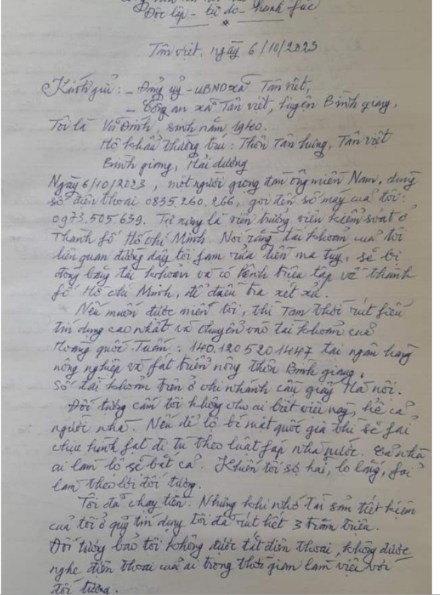 Độc lập - tự do - hạnh phúc
Tân việt, ngày 6/10/2023
Kính gửi: - Đảng ủy - UBND xã Tân việt,
- Công an xã Tân việt, huyện Bình giang,
Tôi là Vũ Đình, sinh năm 1960.
Hộ khẩu thường trú: Thôn Tân hưng, Tân việt
Bình giang, Hải dương
Ngày 6/10/2023, một người giọng đàn ông miền Nam, dùng
số điện thoại 0835.260.266, gọi đến số máy của tôi:
0973.505.659. Tự xưng là viện trưởng viện kiểm soát ở
Thành fố Hồ chí Minh. Nói rằng tài khoản của tôi
liên quan đường dây tội fạm rửa tiền ma túy, sẽ bị
đóng băng tài khoản và có lệnh triệu tập về thành
fố Hồ chí Minh, để điều tra xét xử.
Nếu muốn được miễn tội, thì Tạm thời rút fiếu
tín dụng cao nhất và chuyển vào tài khoản của
Hoàng quốc Tuấn: 140.120.5201447 tại ngân hàng
nông nghiệp và fát triển nông thôn Bình giang.
Số tài khoản trên ở chi nhánh cầu giấy Hà nội.
Đối tượng cấm tôi không cho ai biết việc này, kể cả
người nhà. Nếu để lộ bí mật quốc gia thì sẽ fải
chịu hình fạt đi tù theo luật fáp nhà nước.
ai làm lộ sẽ bắt cả. Khiến tôi sợ hãi, lo lắng, fải
làm theo lời đối tượng.
Tôi đã chạy tiền. Nhưng khi nhớ tài sản tiết kiệm
của tôi ở quỹ tín dụng tôi đã rút hết 3 trăm triệu.
Đối tượng bảo tôi không được tắt điện thoại, không được
nghe điện thoại của ai trong thời gian làm việc với
đối tượng.